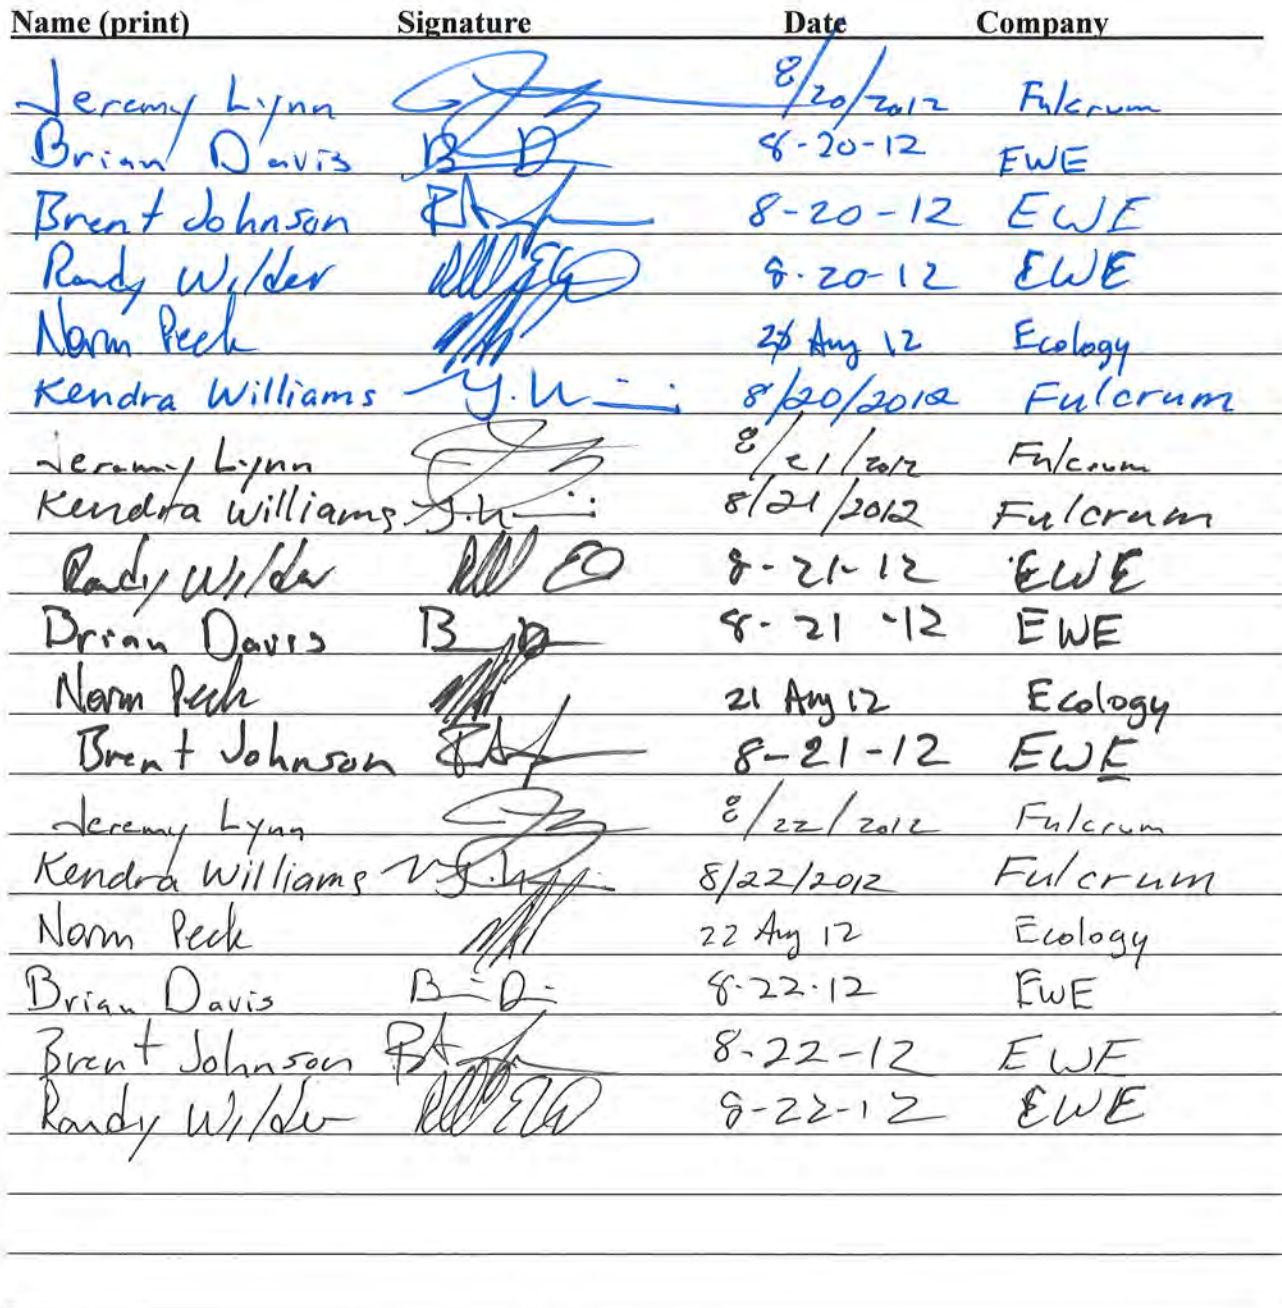 Name (print) Signature Date Company
Jeremy Lynn 8/20/2012 Fulcrum
Brian Davis B D 8-20-12 EWE
Brent Johnson 8-20-12 EWE
Randy Wilder 8-20-12 EWE
Norm Peck Aug 12 Ecology
Kendra Williams 8/20/2012 Fulcrum
Jeremy Lynn 8/21/2012 Fulcrum
Kendra Williams 8/21/2012 Fulcrum
Randy Wilder 8-21-12 EWE
Brian Davis B D 8-21-12 EWE
Norm Peck 21 Aug 12 Ecology
Brent Johnson 8-21-12 EWE
Jeremy Lynn 8/22/2012 Fulcrum
Kendra Williams 8/22/2012 Fulcrum
Norm Peck 22 Aug 12 Ecology
Brian Davis B D 8-22-12 EWE
Brent Johnson 8-22-12 EWE
Randy Wilder 8-22-12 EWE